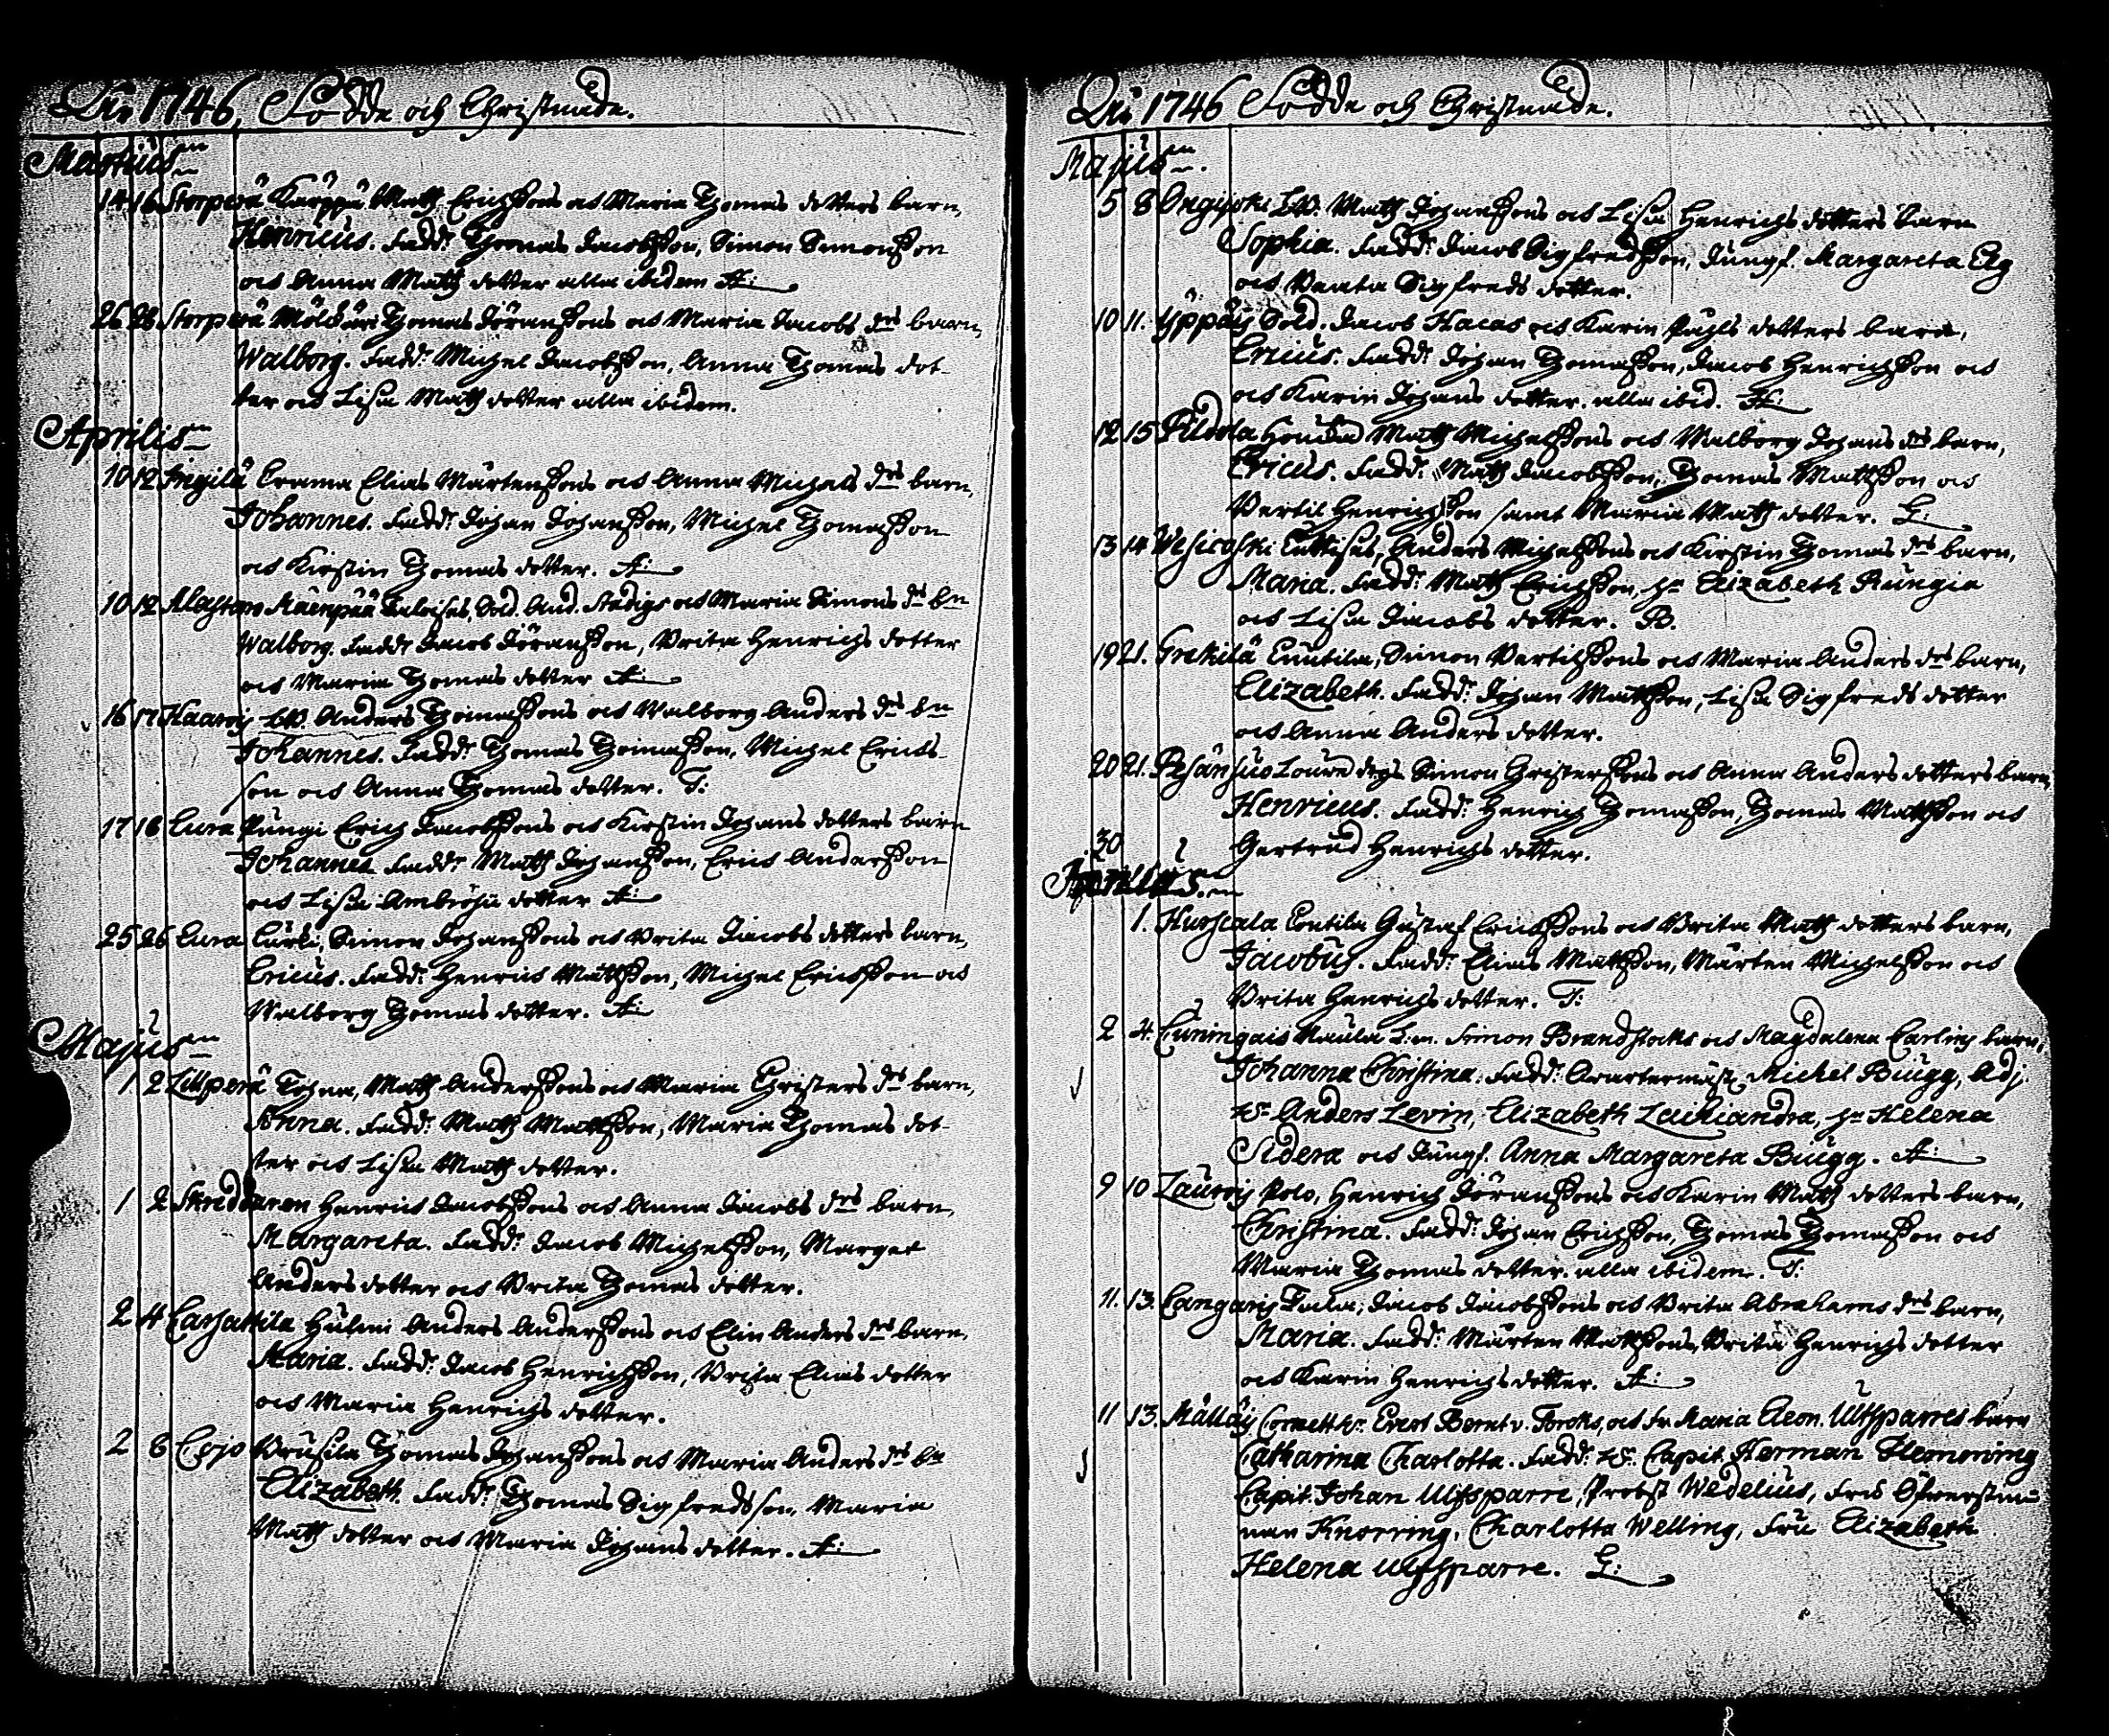 År 1746, Födde och Christnade.
Martius
14 16 Storperä Kärppä Matts Erichssons och Maria Thomas dotters barn,
Henricus. Fadd: Thomas Jacobsson, Simon Simonsson
och Anna Matts dotter alla ibidem A:
26 28 Storperä Thomas Jöranssons och Maria Jacobs drs barn,
Walborg. Fadd: Michel Jacobsson, Anna Thomas dot-
ter och Lisa Matts dotter alla ibidem.
Aprilis
10 12 Angilä Erama Elias Mårtenssons och Anna Michels drs barn,
Johannes. Fadd: Johan Johansson, Michel Thomasson
och Kirstin Thomas dotter. A:
10 12 Alastaro Mäenpää Sold. And. Stadigs och Maria Simons drs bn
Walborg. Fadd: Jacob Jöransson, Brita Henrichs dotter
och Maria Thomas dotter A:
16 17 Haarois Anders Thomassons och Walborg Anders drs bn
Johannes. Fadd: Thomas Thomasson, Michel Erics-
son och Anna Thomas dotter. T:
17 18 Eura Pungi Erich Jacobssons och Kirstin Johans dotters barn
Johannes Fadd: Matts Johansson, Eric Andersson
och Lisa Ambrosii dotter A:
25 26 Eura Simon Johanssons och Brita Jacobs dotters barn,
Ericus. Fadd: Henric Mattsson, Michel Ericsson och
Walborg Thomas dotter. A:
Majus
1 2 Lillperä Matts Anderssons och Maria Christers drs barn,
Anna. Fadd: Matts Mattsson, Maria Thomas dot-
ter och Lisa Matts dotter.
1 2 Henric Jacobssons och Anna Jacobs drs barn,
Margareta. Fadd: Jacob Michelsson, Marget
Anders dotter och Brita Thomas dotter.
2 4 Carhattila Anders Anderssons och Elin Anders drs barn,
Maria. Fadd: Jacob Henrichsson, Brita Elias dotter
och Maria Henrichs dotter.
2 8 Cojo Brusila Thomas Johanssons och Maria Anders drs bn
Elizabeth. Fadd: Thomas Sigfredsson, Maria
Matts dotter och Maria Johans dotter. A:
År 1746 Födde och Christnade.
Majus.
5 8 Matts Johanssons och Lisa Henrichs dotters barn
Sophia. Fadd: Jacob Sigfredsson, Jungf. Margareta Elg
och Beata Sigfreds dotter.
10 11. Yppäis Sold. Jacob Hacas och Karin Påhls dotters barn,
Ericus. Fadd: Johan Thomasson, Jacob Henrichsson och
och Karin Johans dotter. alla ibid. A:
12 15 Matts Michelssons och Walborg Johans drs barn,
Ericus. Fadd: Matts Jacobsson, Thomas Mattsson och
Bertil Henrichsson samt Maria Matts dotter. L:
13 14 Wesicoski Anders Michelssons och Kirstin Thomas drs barn,
Maria. Fadd: Matts Erichsson, hu Elizabeth Rungia
och Lisa Jacobs dotter. B.
19 21. Grekilä Simon Bertilssons och Maria Anders drs barn,
Elizabeth. Fadd: Johan Mattsson, Lisa Sigfreds dotter
och Anna Anders dotter.
20 21. Pesänsuo Simon Christerssons och Anna Anders dotters barn,
Henricus. Fadd: Henrich Thomasson, Thomas Mattsson och
30 Gertrud Henrichs dotter.
Junius.
1. Hurscala Gustaf Ericssons och Brita Matts dotters barn,
Jacobus. Fadd: Elias Mattsson, Mårten Michelsson och
Brita Henrichs dotter. T:
2 4. Cuningais Naula Simon Brandstacks och Magdalena Carlings barn,
Johanna Christina. Fadd: Qvartermäst. Michel Bugg, Adj.
Hr Anders Levin, Elizabeth Zachiandra, hu Helena
Sidera och Jungf. Anna Margareta Bugg. A:
9 10 Laurois Polo, Henrich Jöranssons och Karin Matts dotters barn,
Christina. Fadd: Johan Erichsson, Thomas Thomasson och
Maria Thomas dotter. alla ibidem. T:
11. 13. Cangaris Jacob Jacobssons och Brita Abrahams drs barn,
Maria. Fadd: Mårten Mattssons, Brita Henrichs dotter
och Karin Henrichs dotter. A:
11 13. Mälläis Cornett hr. Evert Bernt v. Torcks, och fr. Maria Eleon. Ulfsparres barn
Catharina Charlotta. Fadd: Hr. Capit. Herman Flemming
Capit. Johan Ulfsparre, Probst Wedelius, Fru Öfwerstin-
nan Knorring, Charlotta Welling, Fru Elizabeth
Helena Ulfsparre. L: